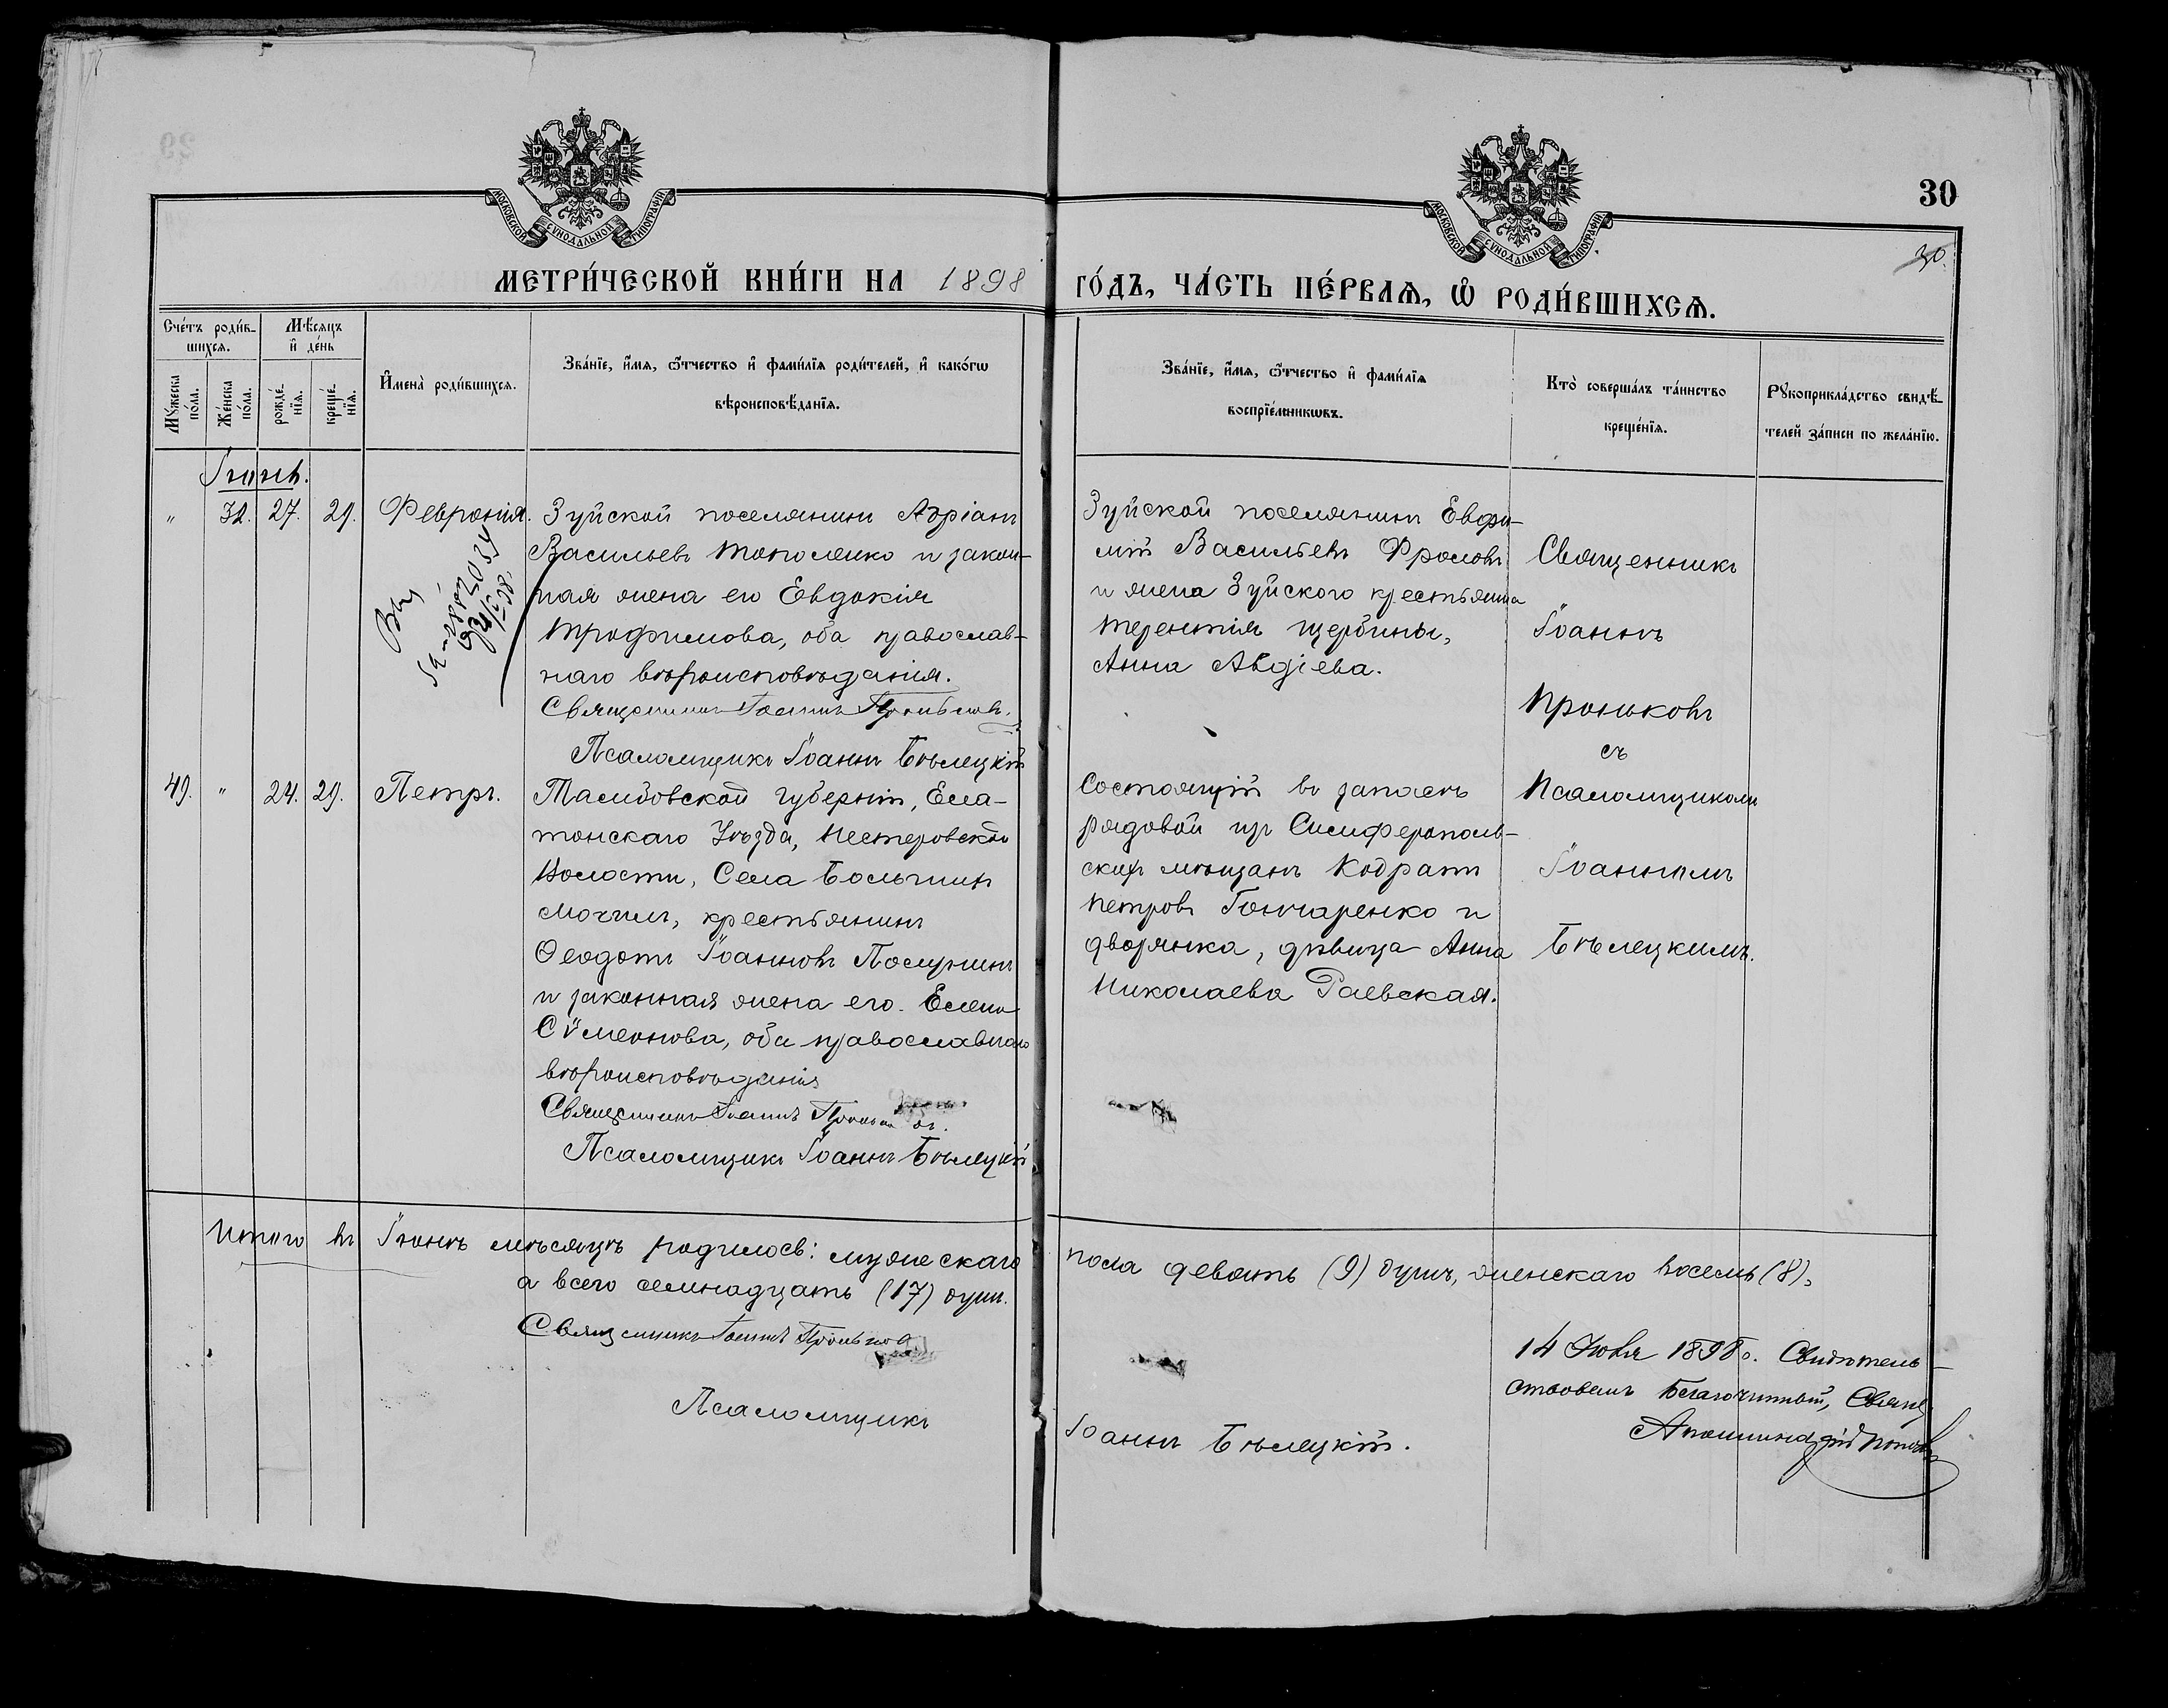 МОСКОВСКОЙ СѴНОДАЛЬНОЙ ТИПОГРАФІИ
МОСКОВСКОЙ СѴНОДАЛЬНОЙ ТИПОГРАФІИ
30
30.
МЕТРИ́ЧЕСКОЙ КНИ́ГИ НА 1898 ГО́ДЪ, ЧА́СТЬ ПЕ́РВАѦ, Ѡ҆ РОДИ́ВШИХСѦ.
Сче́тъ роди́в-
шихсѧ.
Мѣ́сѧцъ
и҆ де́нь
Мꙋ́жеска
по́ла.
Же́нска
по́ла.
рожде́-
нїѧ.
креще́-
нїѧ.
И҆мена̀ роди́вшихсѧ.
Зва́нїе, и҆́мѧ, ѻ҆́тчество и҆ фами́лїѧ роди́телей, и҆ како́гѡ
вѣроисповѣ́данїѧ.
Зва́нїе, и҆́мѧ, ѻ҆́тчество и҆ фами́лїѧ
воспрїе́мникѡвъ.
Кто̀ соверша́лъ та́инство
креще́нїѧ.
Рꙋкоприкла́дство свидѣ́-
телей за́писи по жела́нїю.
Іюнь.
„ 32. 27. 29. Феврония.
Зуйской поселянинъ Адріанъ
Васильевъ Тополенко и закон-
ная жена его Евдокія
Трофимова, оба православ-
наго вѣроисповѣданія.
Священникъ Іоаннъ Проньковъ.
Псаломщикъ Іоаннъ Бѣлецкій
Зуйской поселянинъ Евфи-
мій Васильевъ Фроловъ
и жена Зуйского крестьянина
Терентія Щербины,
Анна Авдіева.
Священникъ
Іоаннъ
Проньковъ
съ
Псаломщикомъ
Іоанномъ
Бѣлецкимъ.
49. „ 24. 29. Петръ.
Тамбовской губерніи, Ела-
томскаго Уѣзда, Нестеровской
Волости, Села Большихъ
Мочилъ, крестьянинъ
Ѳеодотъ Іоанновъ Полунинъ
и законная жена его Елена
Сѷмеонова, оба православнаго
вѣроисповѣданія
Священникъ Іоаннъ Проньковъ.
Псаломщикъ Іоаннъ Бѣлецкій
Состоящій въ запасѣ
рядовой изъ Симферополь-
скихъ мѣщанъ Кодратъ
Петровъ Гончаренко и
дворянка, дѣвица Анна
Николаева Раевская.
Итого въ Іюнѣ мѣсяцѣ родилось: мужескаго пола девять (9) душъ, женскаго восемь (8),
а всего семнадцать (17) душъ.
Священникъ Іоаннъ Проньковъ
Псаломщикъ Іоаннъ Бѣлецкій.
14 Июля 1898 г. Свидѣтель-
ствовалъ Благочинный, Свящ.